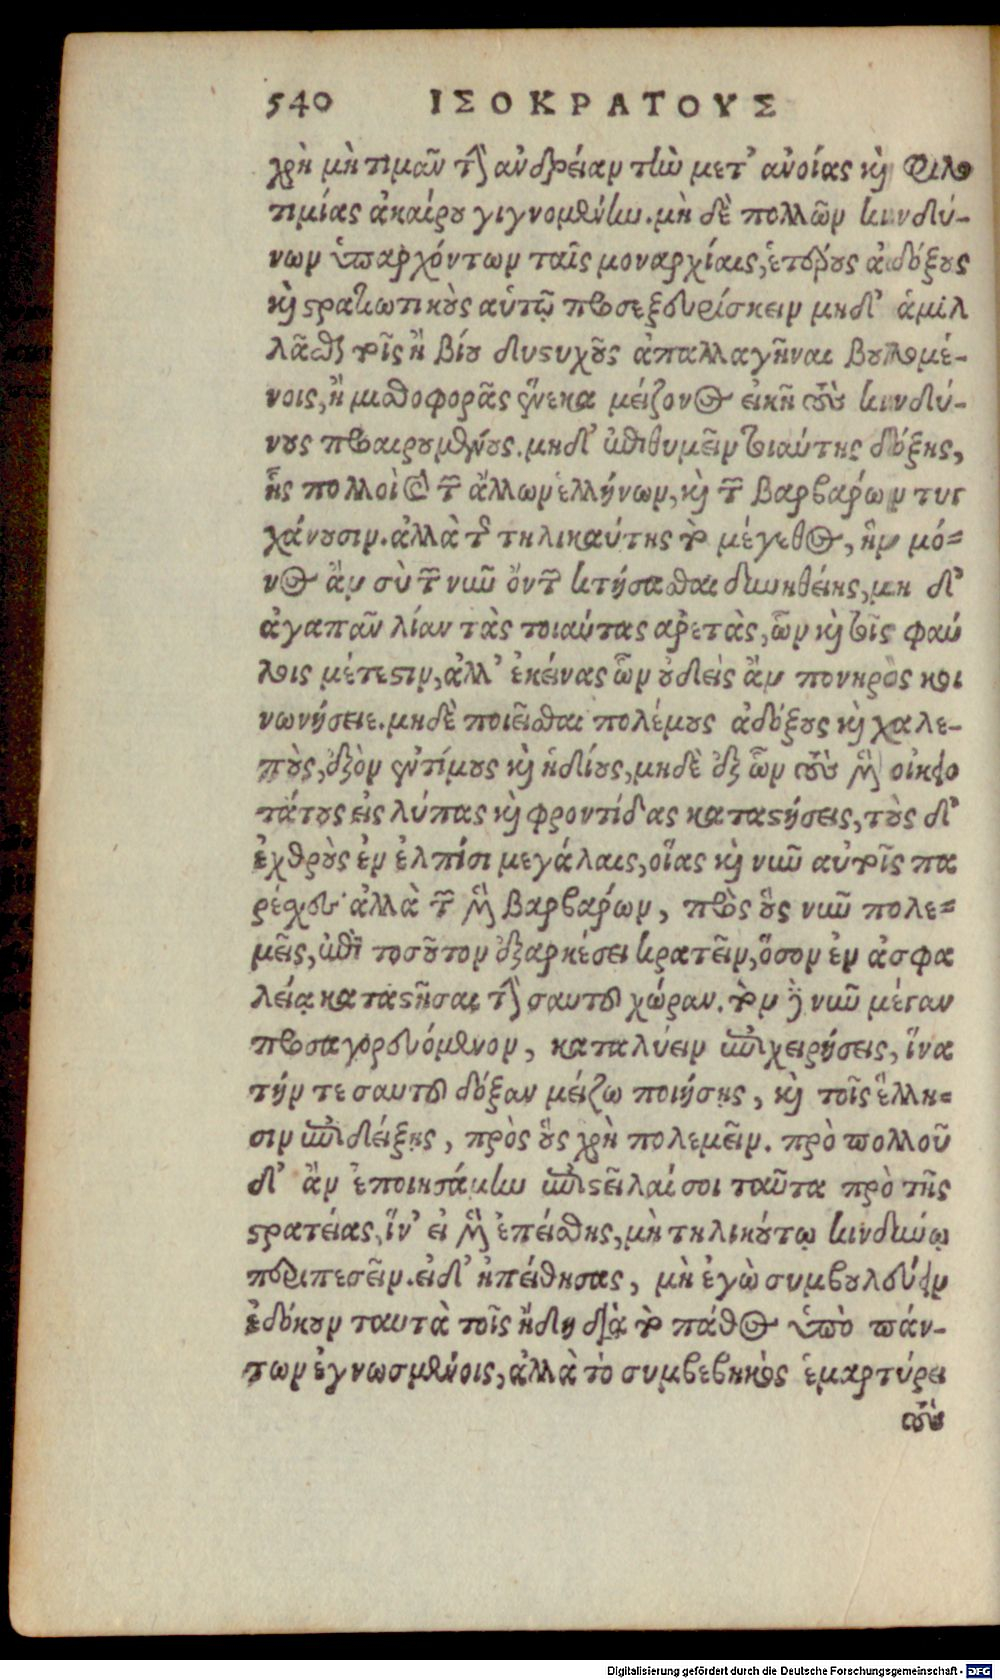 540 ΙΣΟΚΡΑΤΟΥΣ
χρὴ μὴ τιμᾶν τὴν ἀνδρείαν τὴν μετ' ἀνοίας καὶ φιλο
τιμίας ἀκαίρου γιγνομένην. μὴ δὲ πολλῶν κινδύ-
νων ὑπαρχόντων ταῖς μοναρχίαις, ἑτέρους ἀδόξους
καὶ στρατιωτικοὺς αὑτῷ προσεξευρίσκειν μηδ' ἁμιλ
λᾶσθαι τοῖς ἢ βίου δυστυχοῦς ἀπαλλαγῆναι βουλομέ-
νοις, ἢ μισθοφορᾶς ἕνεκα μείζονος εἰκῆ τοὺς κινδύ-
νους προαιρουμένους. μηδ' ἐπιθυμεῖν τοιαύτης δόξης,
ἧς πολλοὶ καὶ τῶν ἄλλων ἑλλήνων, καὶ τῶν βαρβάρων τυγ
χάνουσιν. ἀλλὰ τῆς τηλικαύτης τὸ μέγεθος, ἣν μό-
νος ἂν σὺ τῶν νῦν ὄντων κτήσασθαι δυνηθείης, μη δ'
ἀγαπᾶν λίαν τὰς τοιαύτας ἀρετὰς, ὧν καὶ τοῖς φαύ
λοις μέτεστιν, ἀλλ' ἐκείνας ὧν οὐδεὶς ἂν πονηρὸς κοι
νωνήσειε. μηδὲ ποιεῖσθαι πολέμους ἀδόξους καὶ χαλε-
ποὺς, ἐξὸν ἐντίμους καὶ ῥᾳδίους, μηδὲ ἐξ ὧν τοὺς μὲν οἰκειο
τάτους εἰς λύπας καὶ φροντίδας καταστήσεις, τοὺς δ'
ἐχθροὺς ἐν ἐλπίσι μεγάλαις, οἵας καὶ νῦν αὐτοῖς πα
ρέχεις ἀλλὰ τῶν μὲν βαρβάρων, πρὸς οὓς νῦν πολε-
μεῖς, ἐπὶ τοσοῦτον ἐξαρκέσει κρατεῖν, ὅσον ἐν ἀσφα
λείᾳ καταστῆσαι τὴν σαυτοῦ χώραν. τὸν δὲ νῦν μέγαν
προσαγορευόμενον, καταλύειν ἐπιχειρήσεις, ἵνα
τήν τε σαυτοῦ δόξαν μείζω ποιήσῃς, καὶ τοῖς ἕλλη-
σιν ἐπιδείξῃς, πρὸς οὓς χρὴ πολεμεῖν. πρὸ πολλοῦ
δ' ἂν ἐποιησάμην ἐπιστεῖλαί σοι ταῦτα πρὸ τῆς
στρατείας, ἵν' εἰ μὲν ἐπείσθης, μὴ τηλικούτῳ κινδύνῳ
περιπεσεῖν. εἰ δ' ἠπείθησας, μὴ ἐγὼ συμβουλεύειν
ἐδόκουν ταυτὰ τοῖς ἤδη διὰ τὸ πάθος ὑπὸ πάν-
των ἐγνωσμένοις, ἀλλὰ τὸ συμβεβηκὸς ἐμαρτύρει
τοὺς
Digitalisierung gefördert durch die Deutsche Forschungsgemeinschaft - DFG